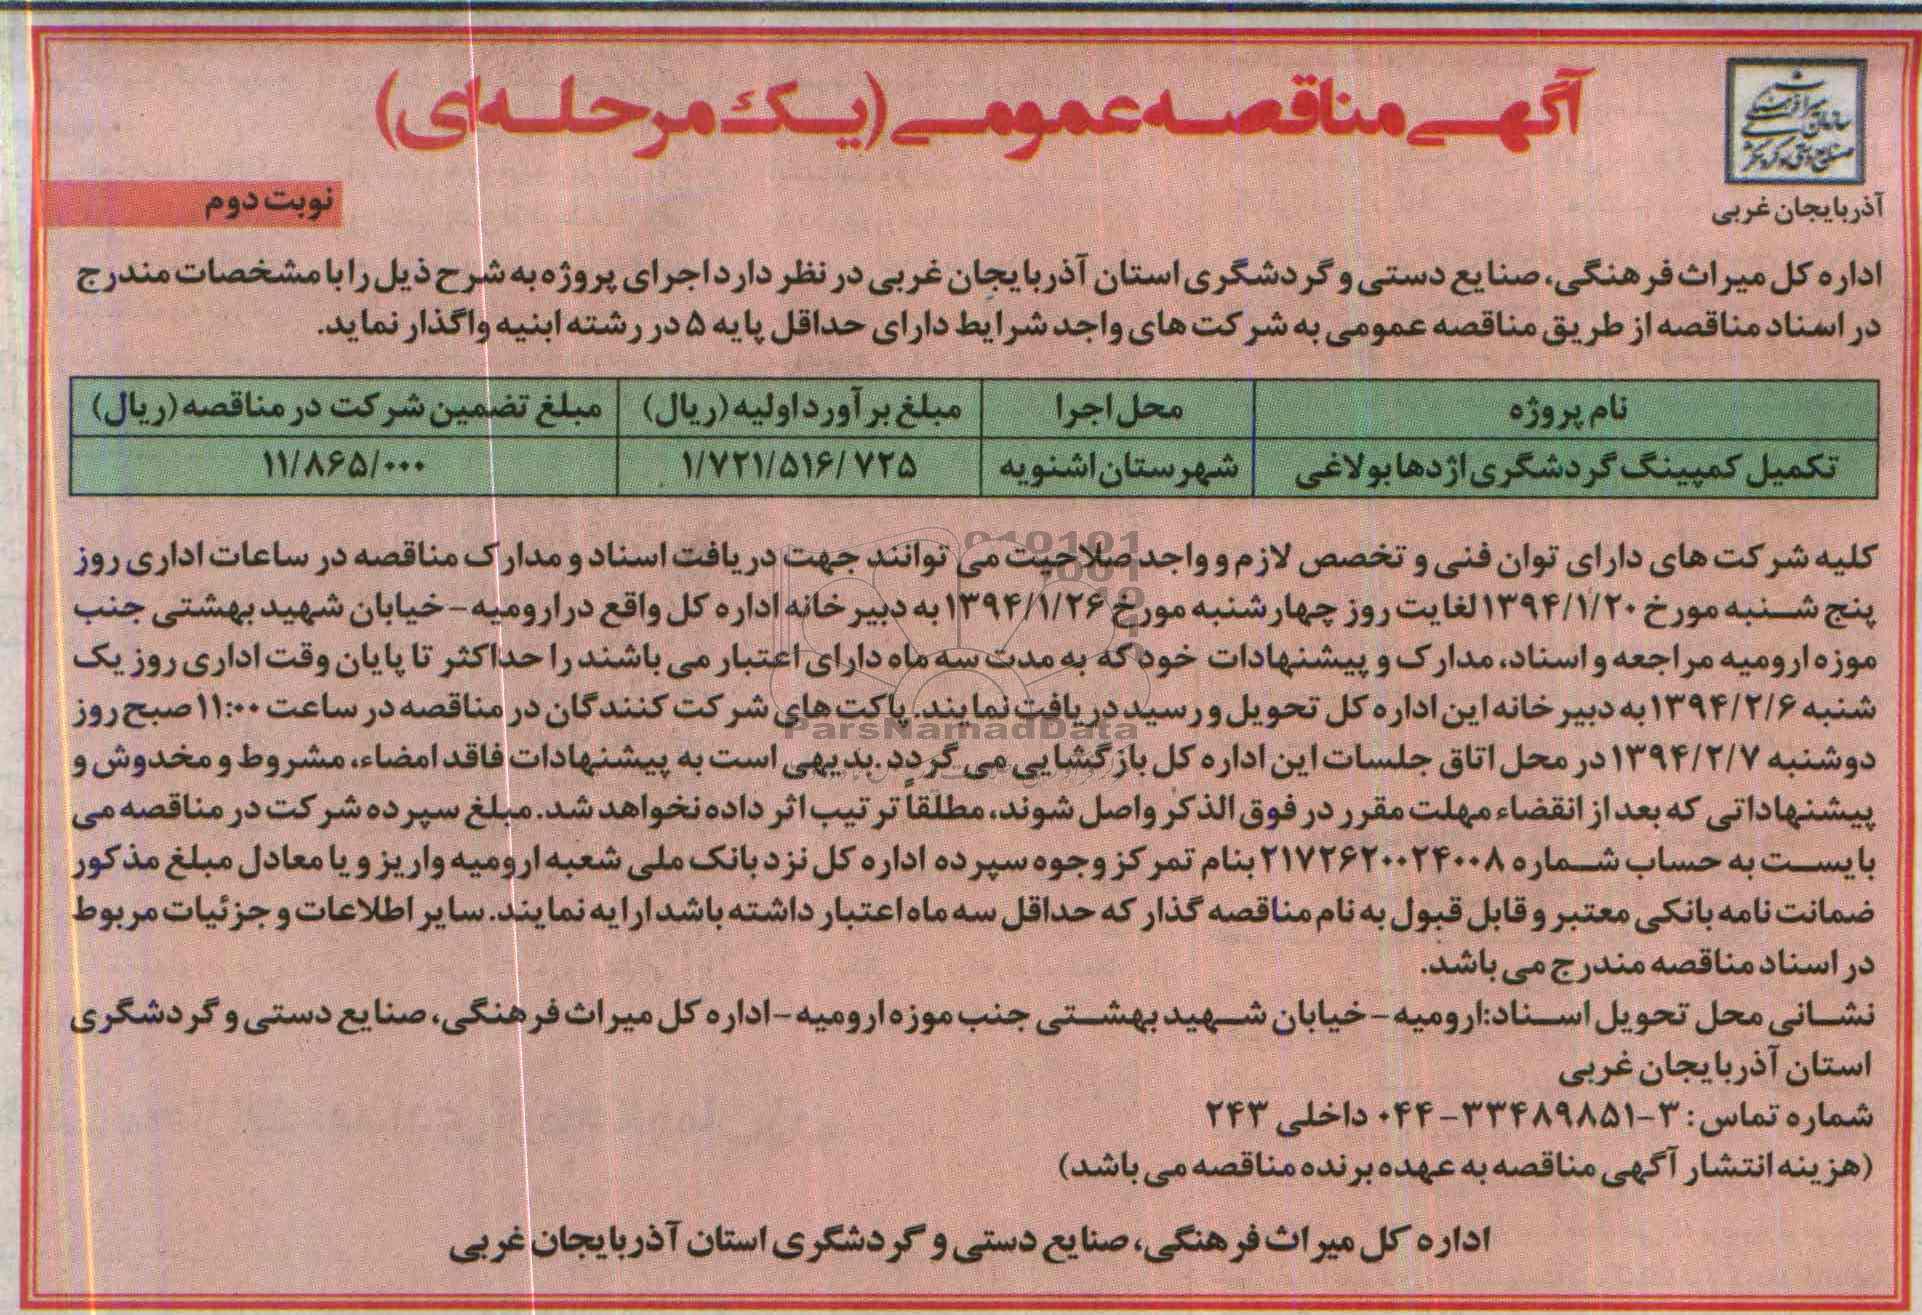 آگهی مناقصه عمومی (یک مرحله‌ای)
سازمان میراث فرهنگی
صنایع دستی و گردشگری
آذربایجان غربی
نوبت دوم
اداره کل میراث فرهنگی، صنایع دستی و گردشگری استان آذربایجان غربی در نظر دارد اجرای پروژه به شرح ذیل را با مشخصات مندرج
در اسناد مناقصه از طریق مناقصه عمومی به شرکت های واجد شرایط دارای حداقل پایه ۵ در رشته ابنیه واگذار نماید.
نام پروژه محل اجرا مبلغ برآورد اولیه (ریال) مبلغ تضمین شرکت در مناقصه (ریال)
تکمیل کمپینگ گردشگری اژدها بولاغی شهرستان اشنویه ۱/۷۲۱/۵۱۶/۷۲۵ ۱۱/۸۶۵/۰۰۰
کلیه شرکت های دارای توان فنی و تخصص لازم و واجد صلاحیت می توانند جهت دریافت اسناد و مدارک مناقصه در ساعات اداری روز
پنج شنبه مورخ ۱۳۹۴/۱/۲۰ لغایت روز چهارشنبه مورخ ۱۳۹۴/۱/۲۶ به دبیرخانه اداره کل واقع در ارومیه - خیابان شهید بهشتی جنب
موزه ارومیه مراجعه و اسناد، مدارک و پیشنهادات خود که به مدت سه ماه دارای اعتبار می باشند را حداکثر تا پایان وقت اداری روز یک
شنبه ۱۳۹۴/۲/۶ به دبیرخانه این اداره کل تحویل و رسید دریافت نمایند. پاکت های شرکت کنندگان در مناقصه در ساعت ۱۱:۰۰ صبح روز
دوشنبه ۱۳۹۴/۲/۷ در محل اتاق جلسات این اداره کل بازگشایی می گردد. بدیهی است به پیشنهادات فاقد امضاء، مشروط و مخدوش و
پیشنهاداتی که بعد از انقضاء مهلت مقرر در فوق الذکر واصل شوند، مطلقاً ترتیب اثر داده نخواهد شد. مبلغ سپرده شرکت در مناقصه می
بایست به حساب شماره ۲۱۷۲۶۲۰۰۲۴۰۰۸ بنام تمرکز وجوه سپرده اداره کل نزد بانک ملی شعبه ارومیه واریز و یا معادل مبلغ مذکور
ضمانت نامه بانکی معتبر و قابل قبول به نام مناقصه گذار که حداقل سه ماه اعتبار داشته باشد ارایه نمایند. سایر اطلاعات و جزئیات مربوط
در اسناد مناقصه مندرج می باشد.
نشانی محل تحویل اسناد: ارومیه - خیابان شهید بهشتی جنب موزه ارومیه - اداره کل میراث فرهنگی، صنایع دستی و گردشگری
استان آذربایجان غربی
شماره تماس: ۳-۳۳۴۸۹۸۵۱-۰۴۴ داخلی ۲۴۳
(هزینه انتشار آگهی مناقصه به عهده برنده مناقصه می باشد)
اداره کل میراث فرهنگی، صنایع دستی و گردشگری استان آذربایجان غربی
ParsNamadData